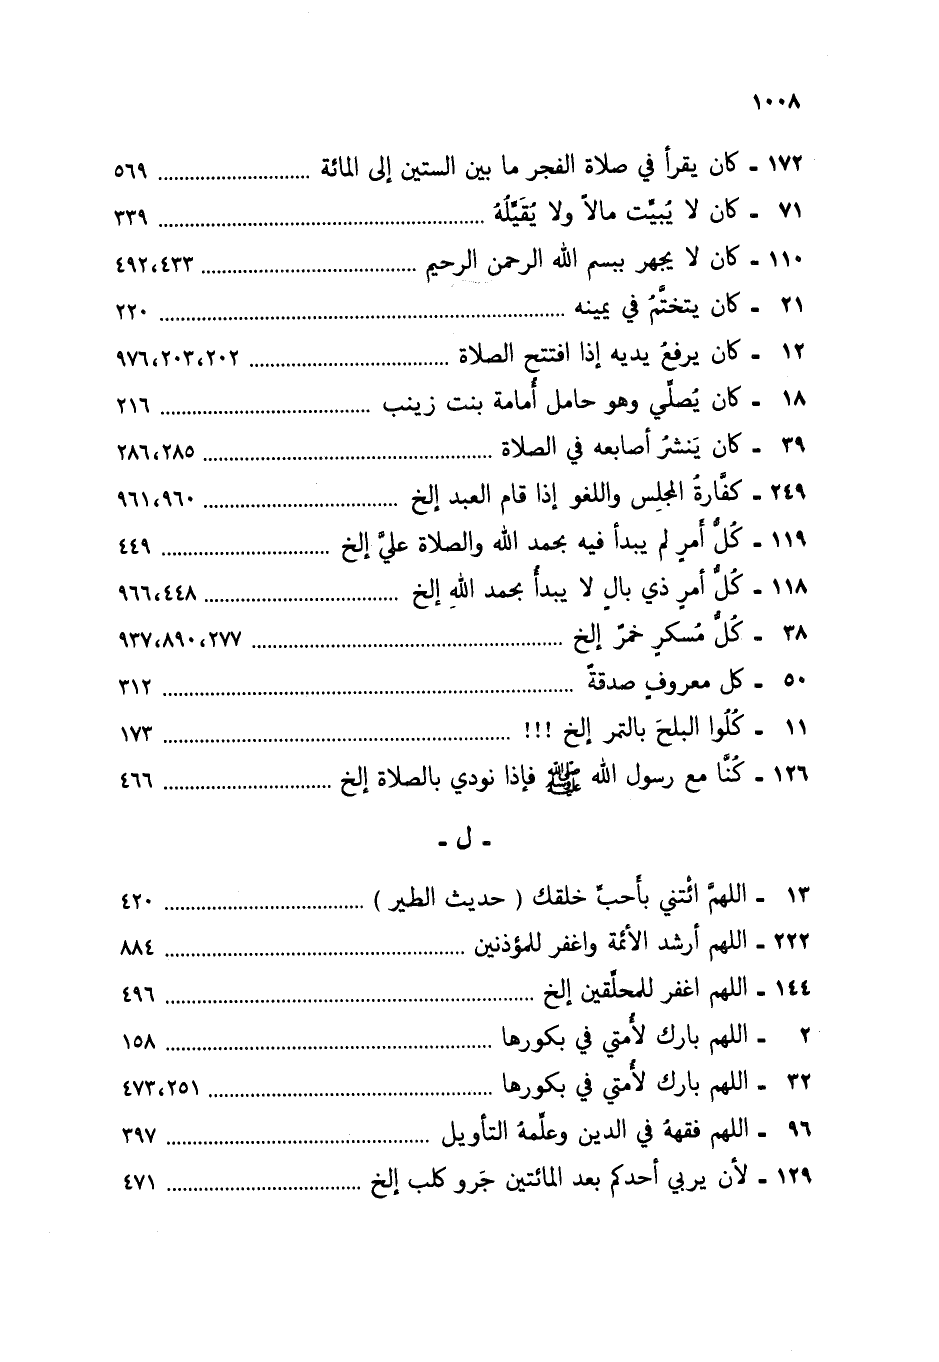 ١٠٠٨
١٧٢ ـ كان يقرأ في صلاة الفجر ما بين الستين إلى المائة ........ ٥٦٩
٧١ ـ كان لا يُبيَّت مالاً ولا يُقَيَّلُهُ ........ ٣٣٩
١١٠ ـ كان لا يجهر ببسم الله الرحمن الرحيم ........ ٤٩٢،٤٣٣
٢١ ـ كان يتختَّمُ في يمينه ........ ٢٢٠
١٢ ـ كان يرفعُ يديه إذا افتتح الصلاة ........ ٩٧٦،٢٠٣،٢٠٢
١٨ ـ كان يُصلّي وهو حامل أُمامة بنت زينب ........ ٢١٦
٣٩ ـ كان يَنشرُ أصابعه في الصلاة ........ ٢٨٦،٢٨٥
٢٤٩ ـ كفَّارةُ المجلِس واللغو إذا قام العبد إلخ ........ ٩٦١،٩٦٠
١١٩ ـ كُلُّ أَمرٍ لم يبدأ فيه بحمد الله والصلاة عليَّ إلخ ........ ٤٤٩
١١٨ ـ كُلُّ أمرٍ ذي بالٍ لا يبدأُ بحمد اللهِ إلخ ........ ٩٦٦،٤٤٨
٣٨ ـ كُلُّ مُسكرٍ خمرٌ إلخ ........ ٩٣٧،٨٩٠،٢٧٧
٥٠ ـ كل معروفٍ صدقةً ........ ٣١٢
١١ ـ كُلُوا البلحَ بالتمر إلخ !!! ........ ١٧٣
١٢٦ ـ كُنَّا مع رسول الله ﷺ فإذا نودي بالصلاة إلخ ........ ٤٦٦
ـ ل ـ
١٣ ـ اللهمَّ ائْتني بأَحبِّ خلقك ( حديث الطير ) ........ ٤٢٠
٢٢٢ ـ اللهم أرشد الأئمة واغفر للمؤذنين ........ ٨٨٤
١٤٤ ـ اللهم اغفر للمحلّقين إلخ ........ ٤٩٦
٢ ـ اللهم بارك لأُمتي في بكورها ........ ١٥٨
٣٢ ـ اللهم بارك لأُمتي في بكورها ........ ٤٧٣،٢٥١
٩٦ ـ اللهم فقههُ في الدين وعلّمهُ التأويل ........ ٣٩٧
١٢٩ ـ لأن يربي أحدكم بعد المائتين جَرو كلب إلخ ........ ٤٧١